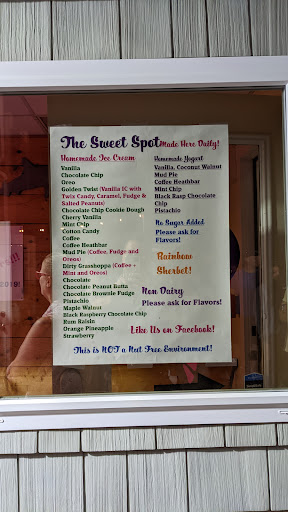 The Sweet Spot Made Here Daily!
Homemade Ice Cream
Vanilla
Chocolate Chip
Oreo
Golden Twist (Vanilla IC with
Twix Candy, Caramel, Fudge &
Salted Peanuts)
Chocolate Chip Cookie Dough
Cherry Vanilla
Mint Chip
Cotton Candy
Coffee
Coffee Heathbar
Mud Pie (Coffee, Fudge and
Oreos)
Dirty Grasshoppa (Coffee +
Mint and Oreos)
Chocolate
Chocolate Peanut Butta
Chocolate Brownie Fudge
Pistachio
Maple Walnut
Black Raspberry Chocolate Chip
Rum Raisin
Orange Pineapple
Strawberry
Homemade Yogurt
Vanilla, Coconut Walnut
Mud Pie
Coffee Heathbar
Mint Chip
Black Rasp Chocolate
Chip
Pistachio
No Sugar Added
Please ask for
Flavors!
Rainbow
Sherbet!
Non Dairy
Please ask for Flavors!
Like Us on Facebook!
This is NOT a Nut Free Environment!